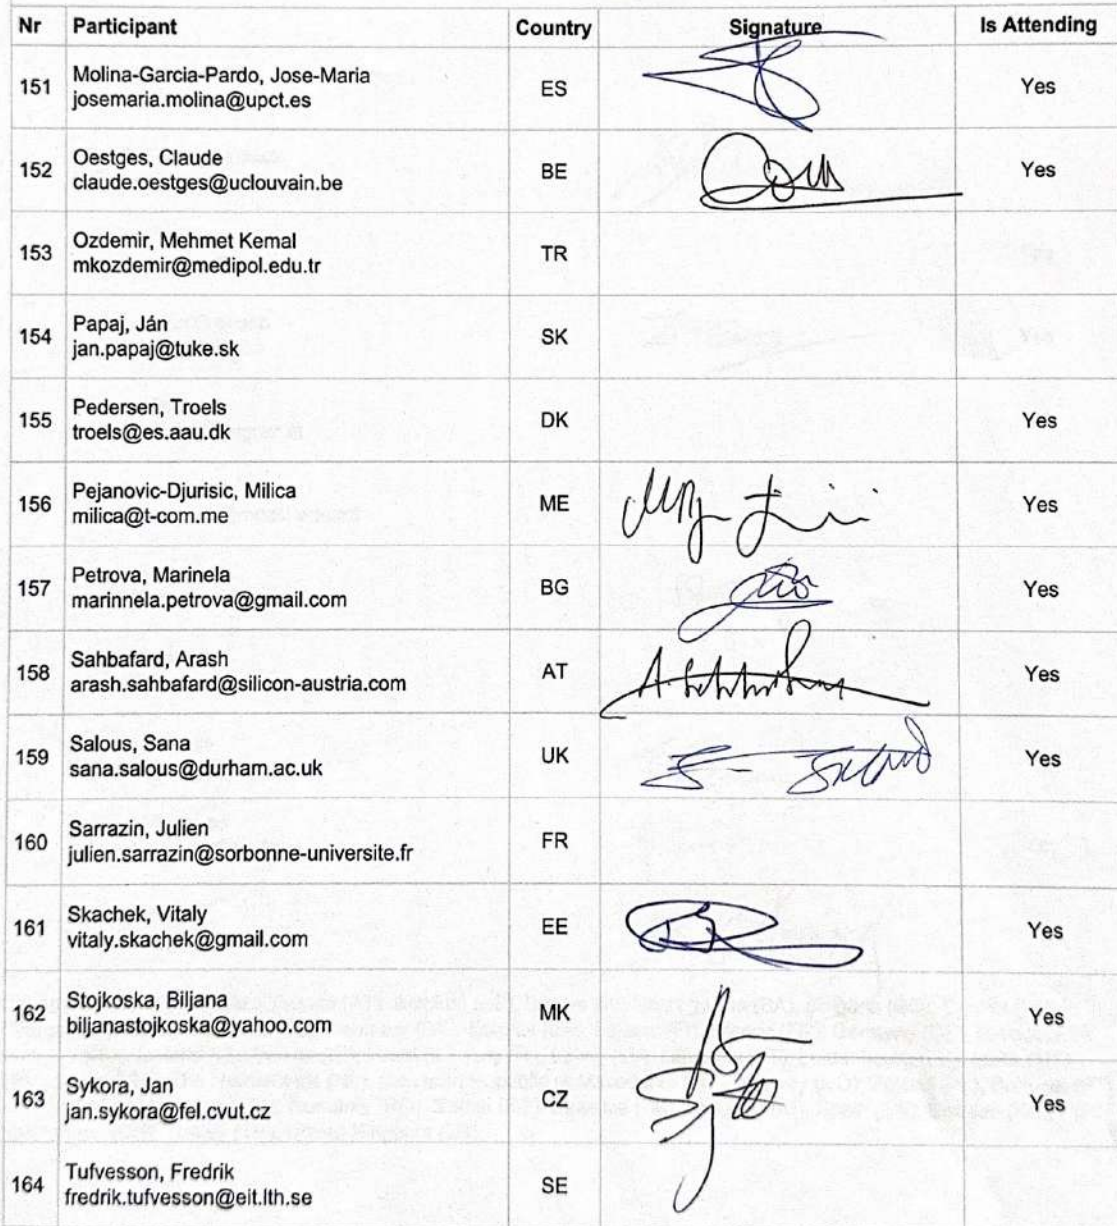 Nr Participant Country Signature Is Attending
151 Molina-Garcia-Pardo, Jose-Maria ES Yes
josemaria.molina@upct.es
152 Oestges, Claude BE Yes
claude.oestges@uclouvain.be
153 Ozdemir, Mehmet Kemal TR
mkozdemir@medipol.edu.tr
154 Papaj, Ján SK
jan.papaj@tuke.sk
155 Pedersen, Troels DK Yes
troels@es.aau.dk
156 Pejanovic-Djurisic, Milica ME Yes
milica@t-com.me
157 Petrova, Marinela BG Yes
marinnela.petrova@gmail.com
158 Sahbafard, Arash AT Yes
arash.sahbafard@silicon-austria.com
159 Salous, Sana UK Yes
sana.salous@durham.ac.uk
160 Sarrazin, Julien FR
julien.sarrazin@sorbonne-universite.fr
161 Skachek, Vitaly EE Yes
vitaly.skachek@gmail.com
162 Stojkoska, Biljana MK Yes
biljanastojkoska@yahoo.com
163 Sykora, Jan CZ Yes
jan.sykora@fel.cvut.cz
164 Tufvesson, Fredrik SE
fredrik.tufvesson@eit.lth.se